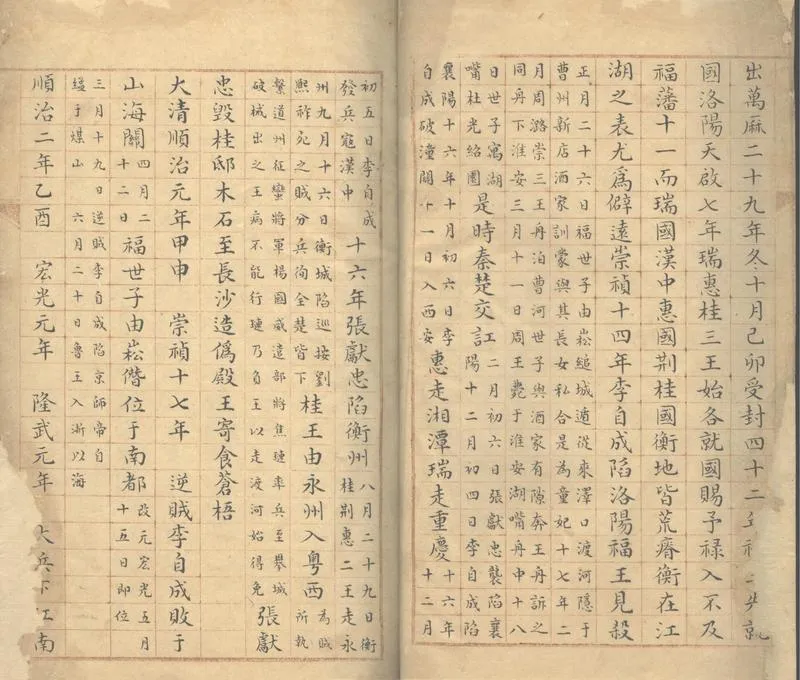 出萬厤二十九年冬十月己卯受封四十二就
國洛陽天啟七年瑞惠桂三王始各就國賜予祿入不及
福藩十一而瑞國漢中惠國荆桂國衡地皆荒瘠衡在江
湖之表尤爲僻遠崇禎十四年李自成陷洛陽福王見殺
正月二十六日福世子由崧縋城遁從來澤口渡河隱于
曹州新店酒家訓蒙與其長女私合是為童妃十七年二
月周潞崇三王舟泊曹河世子與酒家有隙奔王舟訴之
同舟下淮安三月十一日周王薨于淮安湖嘴舟中十八
日世子寓湖
嘴杜光紹園
是時秦楚交訌
二月初六日張獻忠襲陷襄
陽十二月初四日李自成陷
襄陽十六年十月初六日李
自成破潼關十一日入西安
惠走湘潭瑞走重慶
十六年
十二月
初五日李自成
發兵寇漢中
十六年張獻忠陷衡州
八月二十九日衡
桂荆惠二王走永
州九月十六日衡城陷巡按劉
熙祚死之賊分兵徇全楚皆下
桂王由永州入粤西
為賊
所執
繫道州征蠻將軍楊國威遣部將焦璉率兵至攀城
破械出之王病不能行璉乃負王以走渡河始得免
張獻
忠毁桂邸木石至長沙造僞殿王寄食蒼梧
大清順治元年甲申 崇禎十七年 逆賊李自成敗于
山海關
四月二
十二日
福世子由崧僭位于南都
改元宏光五月
十五日即位
三月十九日逆賊李自成陷京師帝自
縊于煤山 六月二十日魯王入浙以海
順治二年乙酉 宏光元年 隆武元年 大兵下江南